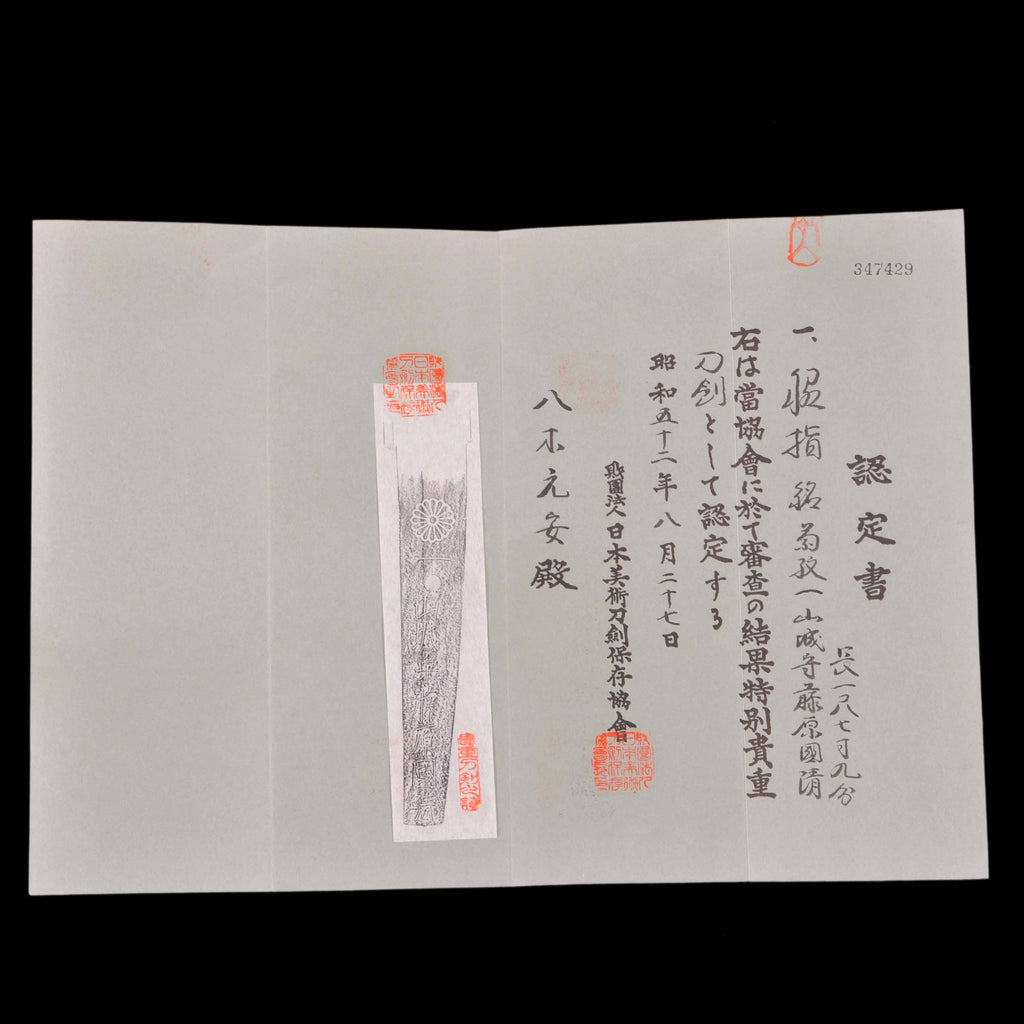 347429
認定書
一、脇指 銘 菊紋一山城守藤原國清
長一尺七寸九分
右は當協會に於て審査の結果特別貴重
刀剣として認定する
昭和五十二年八月二十七日
財團法人日本美術刀劍保存協會
八木元安殿
貴重刀剣之證